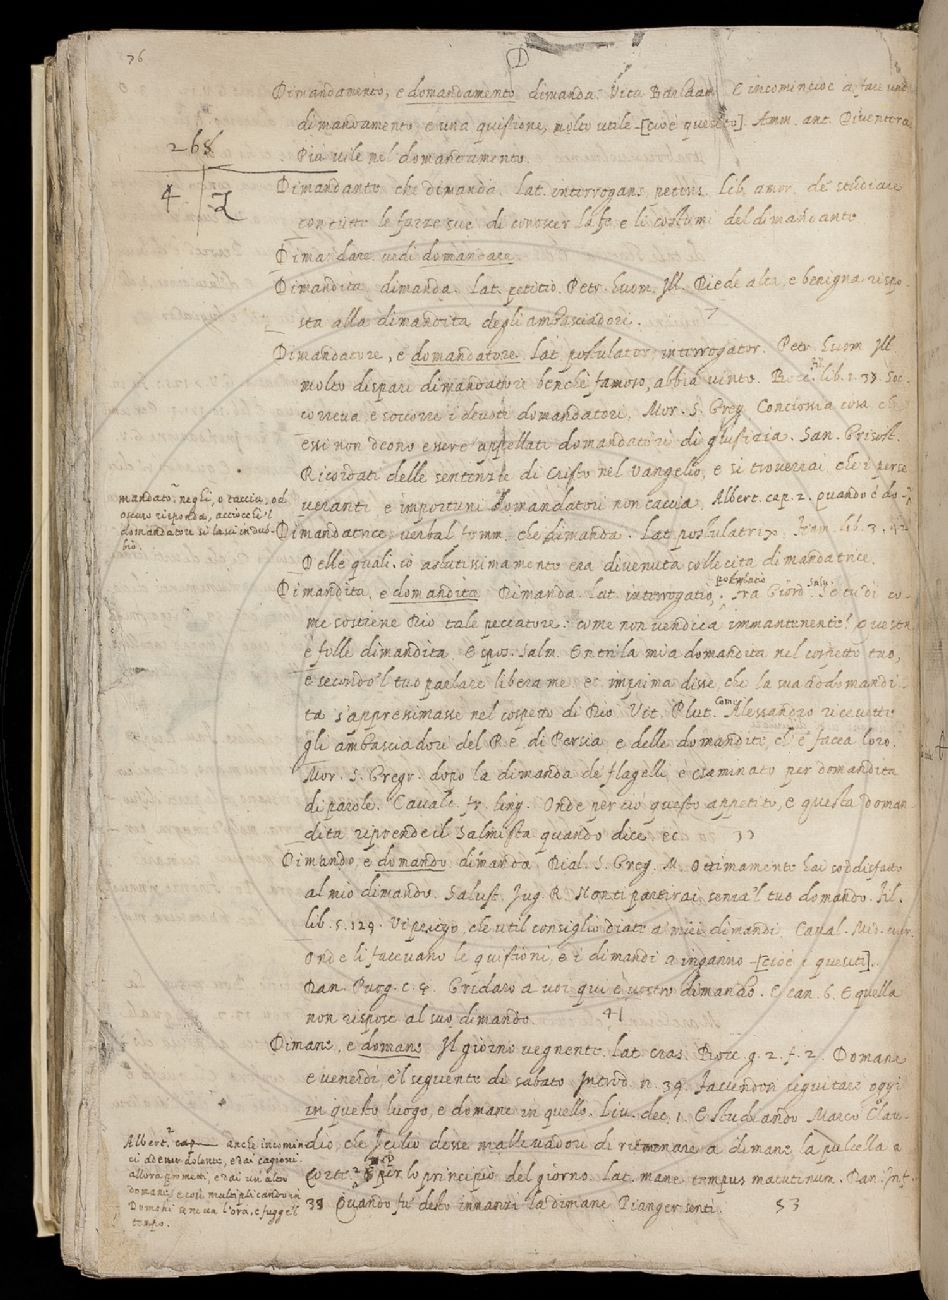 36
D
268
4
Dimandamento, e domandamento dimanda. Vita Barlaam. E incominciòe a fare
dimandamento, e una quistione, molto utile [cioè quesito]. Amm. ant. Diventerà
Più vile nel domandamento.
Dimandante che dimanda. Lat. interrogans, petens. Lib. amor. de studiare
con tutte le forze sue di conoscer la fe e li costumi del dimandante
Dimandare vedi domandare.
Dimandita, dimanda. Lat. petitio. Petr. Huom. Ill. Diede alta, e benigna rispo-
sta alla dimandita degli ambasciadori. 7
Dimandatore, e domandatore. Lat. postulator, interrogator. Petr. Huom Ill
molto dispari dimandatore benchè famoso, abbia vinto. Bocc. lib. 1. 33 Soc-
correva e soccorre i devoti domandatori. Mor. S. Greg. Conciosia cosa che
essi non deono essere appellati domandatori di giustizia. San. Grisost.
Ricordati delle sentenzie di Cristo nel Vangelio, e si troverrai che i perse
veranti e importuni domandatori non caccia. Albert. cap. 2. quando è do-
mandato, negli, o taccia, od
oscuro risponda, acciocchè 'l
domandatore si lasci in dub-
bio.
Dimandatrice, verbal femm. che dimanda. Lat. postulatrix. lib. 3. 42
Delle quali io astutissimamente era divenuta sollecita dimandatrice.
Dimandita, e domandita Dimanda. Lat. interrogatio, postulatio. Fra Giord. Salu. Se tu di co-
me sostiene Dio tale peccatore: come non vendica immantinente? Questa
è folle dimandita. Espos. Salm. Entri la mia domandita nel cospetto tuo,
e secondo 'l tuo parlare libera me ec. imprima disse, che la sua domandi-
ta s'appressimasse nel cospetto di Dio. Vit. Plut. Com. Alessandro ricevette
gli ambasciadori del Re di Persia e delle domandite, ch'e' facea loro.
Mor. S. Gregr. dopo la dimanda de flagelli, è esaminato per domandita
di parole. Cavalc. fr. ling. Onde per ciò questo appetito, e questa doman-
dita riprende il Salmista quando dice ec. 33
Dimando, e domando dimanda. Dial. S. Greg. M. Ottimamente hai soddisfatto
al mio dimando. Salust. Jug. R. Non ti partirai senza 'l tuo domando. Fil.
lib. 5. 129. Vi priego, che util consiglio diate a' miei dimandi. Caval. Med. cuor.
Onde li facevano le quistioni, e i dimandi a inganno [cioè i quesiti].
Dan. Purg. c. 8. Gridaro a voi qui è vostro dimando. E can. 6. E quella
non rispose al suo dimando. 41
Dimane, e domane Il giorno vegnente. Lat. cras. Bocc. g. 2. f. 2. Domane
e venerdì e'l seguente dì sabato Introd. n. 39. faccendone seguitare oggi
in questo luogo, e domane in quello. Liv. dec. 1. E studiando Marco Clau-
dio, che Icilio desse mallevadori di rimenare a dimane la pulcella a
Corte per lo principio del giorno. Lat. mane, tempus matutinum. Dan. Inf.
33 Quando fu' desto innanzi la dimane Pianger senti. 53
Albert. 2 cap anche incomin-
ci adenir dolente, e dai cagioni
allora prometti, e dai un altro
domane e così multiplicando in
Domani se ne va l'ora, e fugge 'l
tempo.